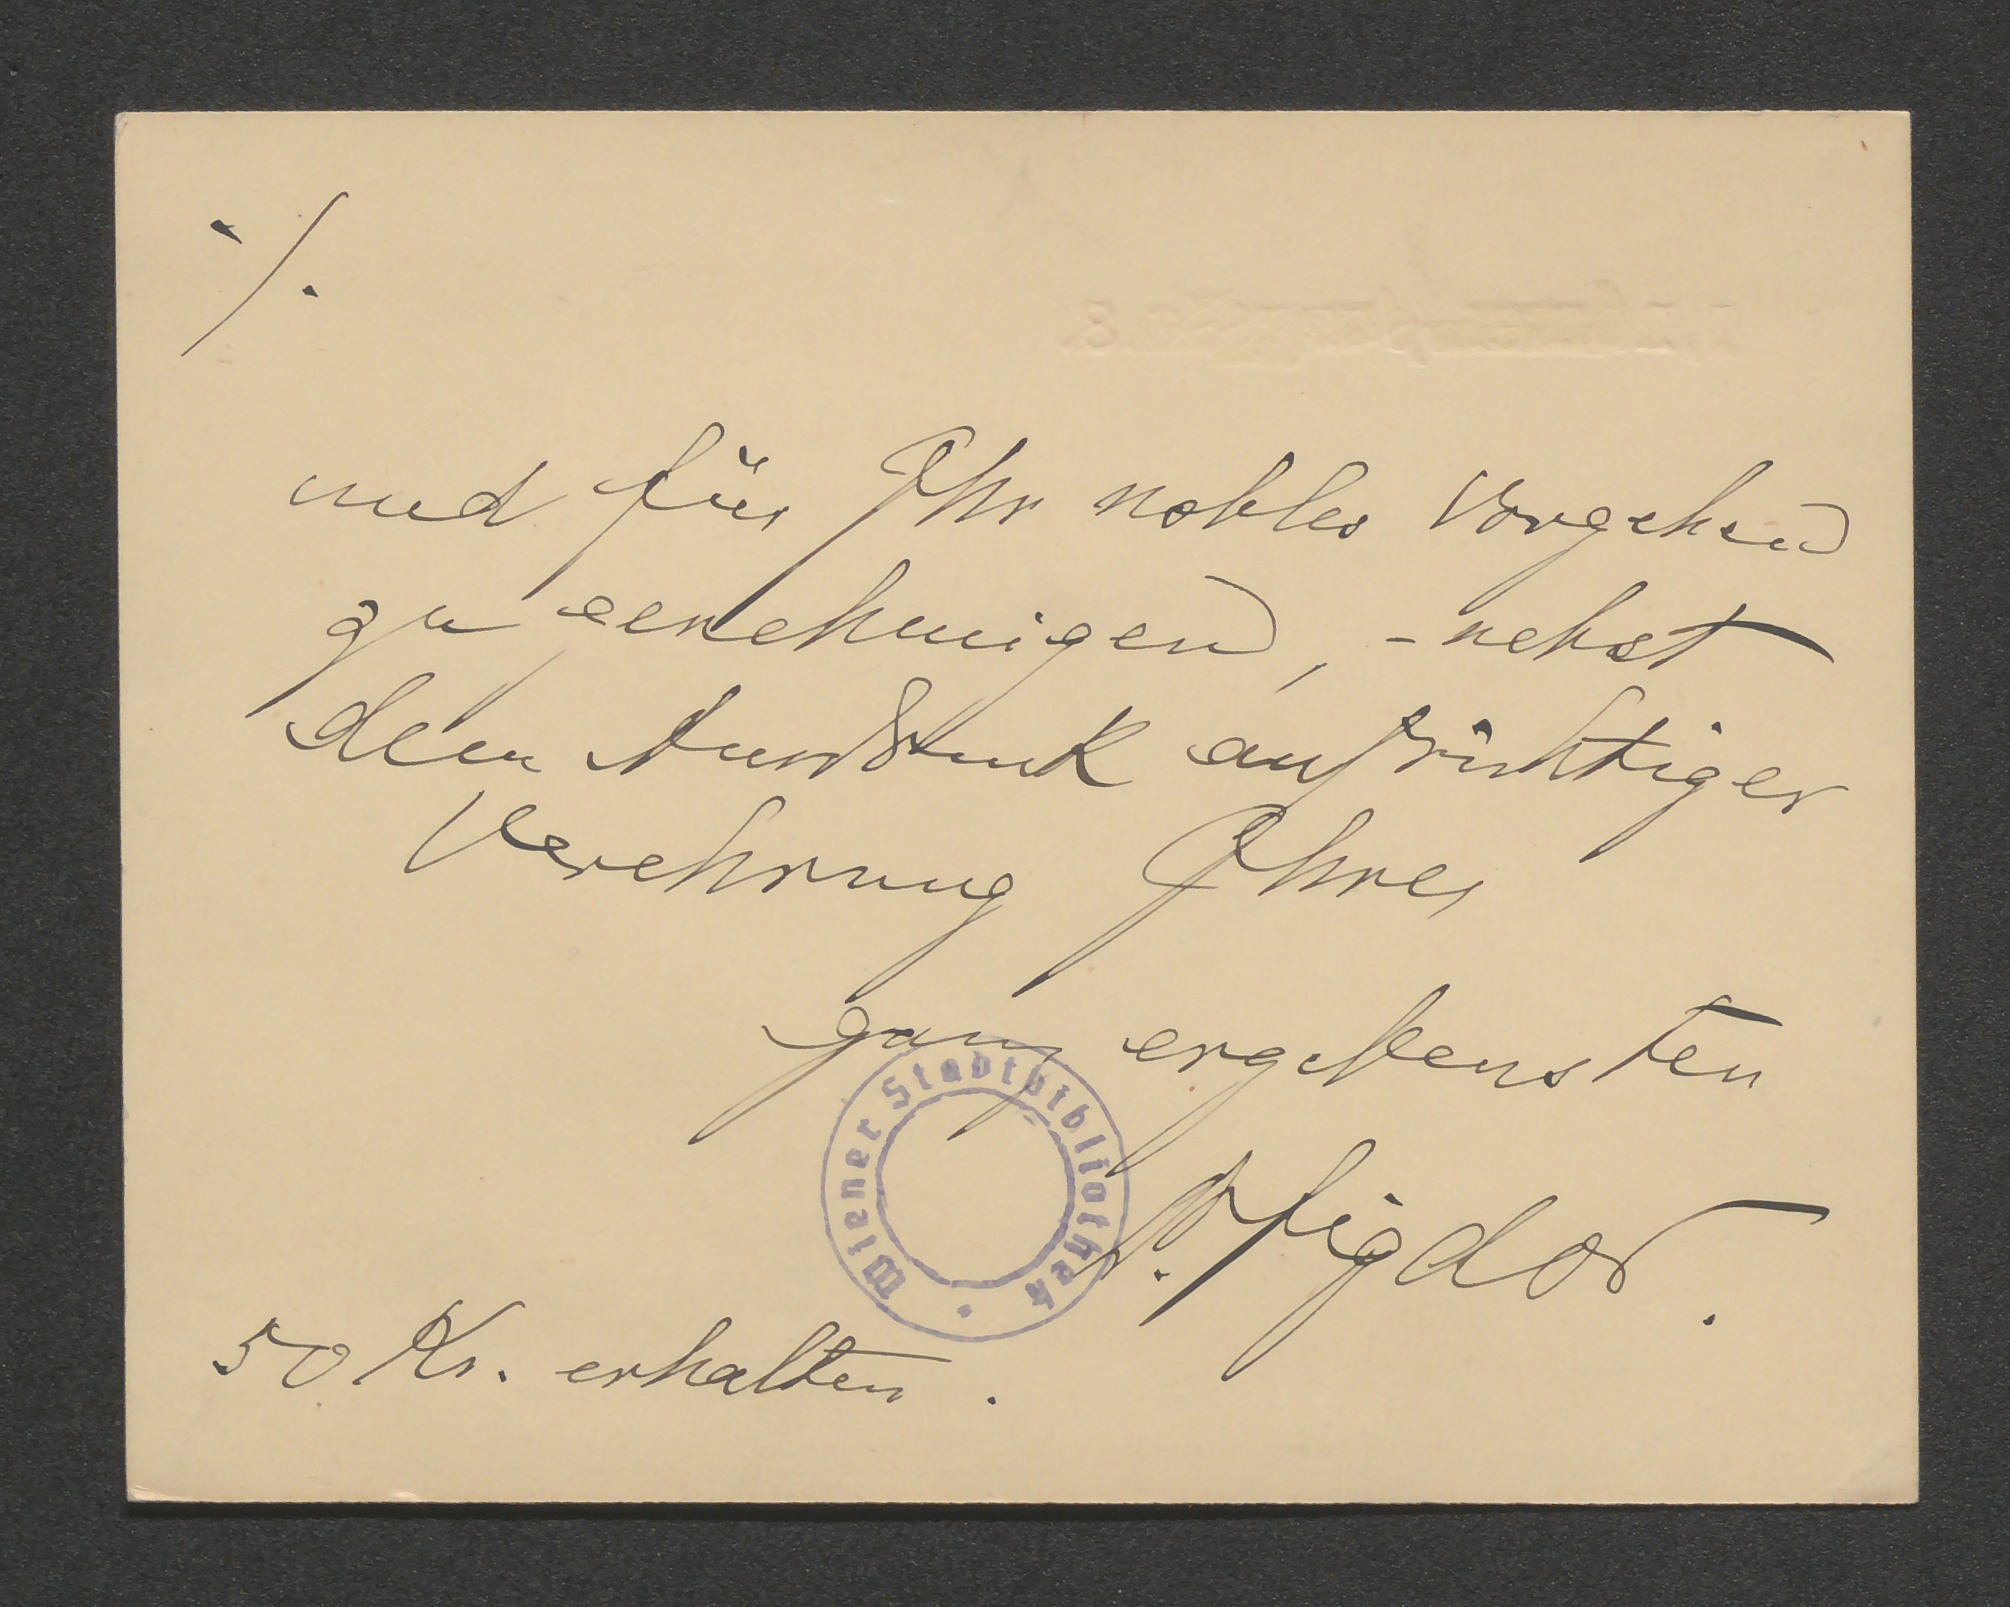 ./.
und für Ihr nobles Vorgehen
zu genehmigen, - nebst
dem Ausdruck aufrichtiger
Verehrung Ihres
ganz ergebensten
Figdor.
Wiener Stadtbibliothek
50 Kr. erhalten.